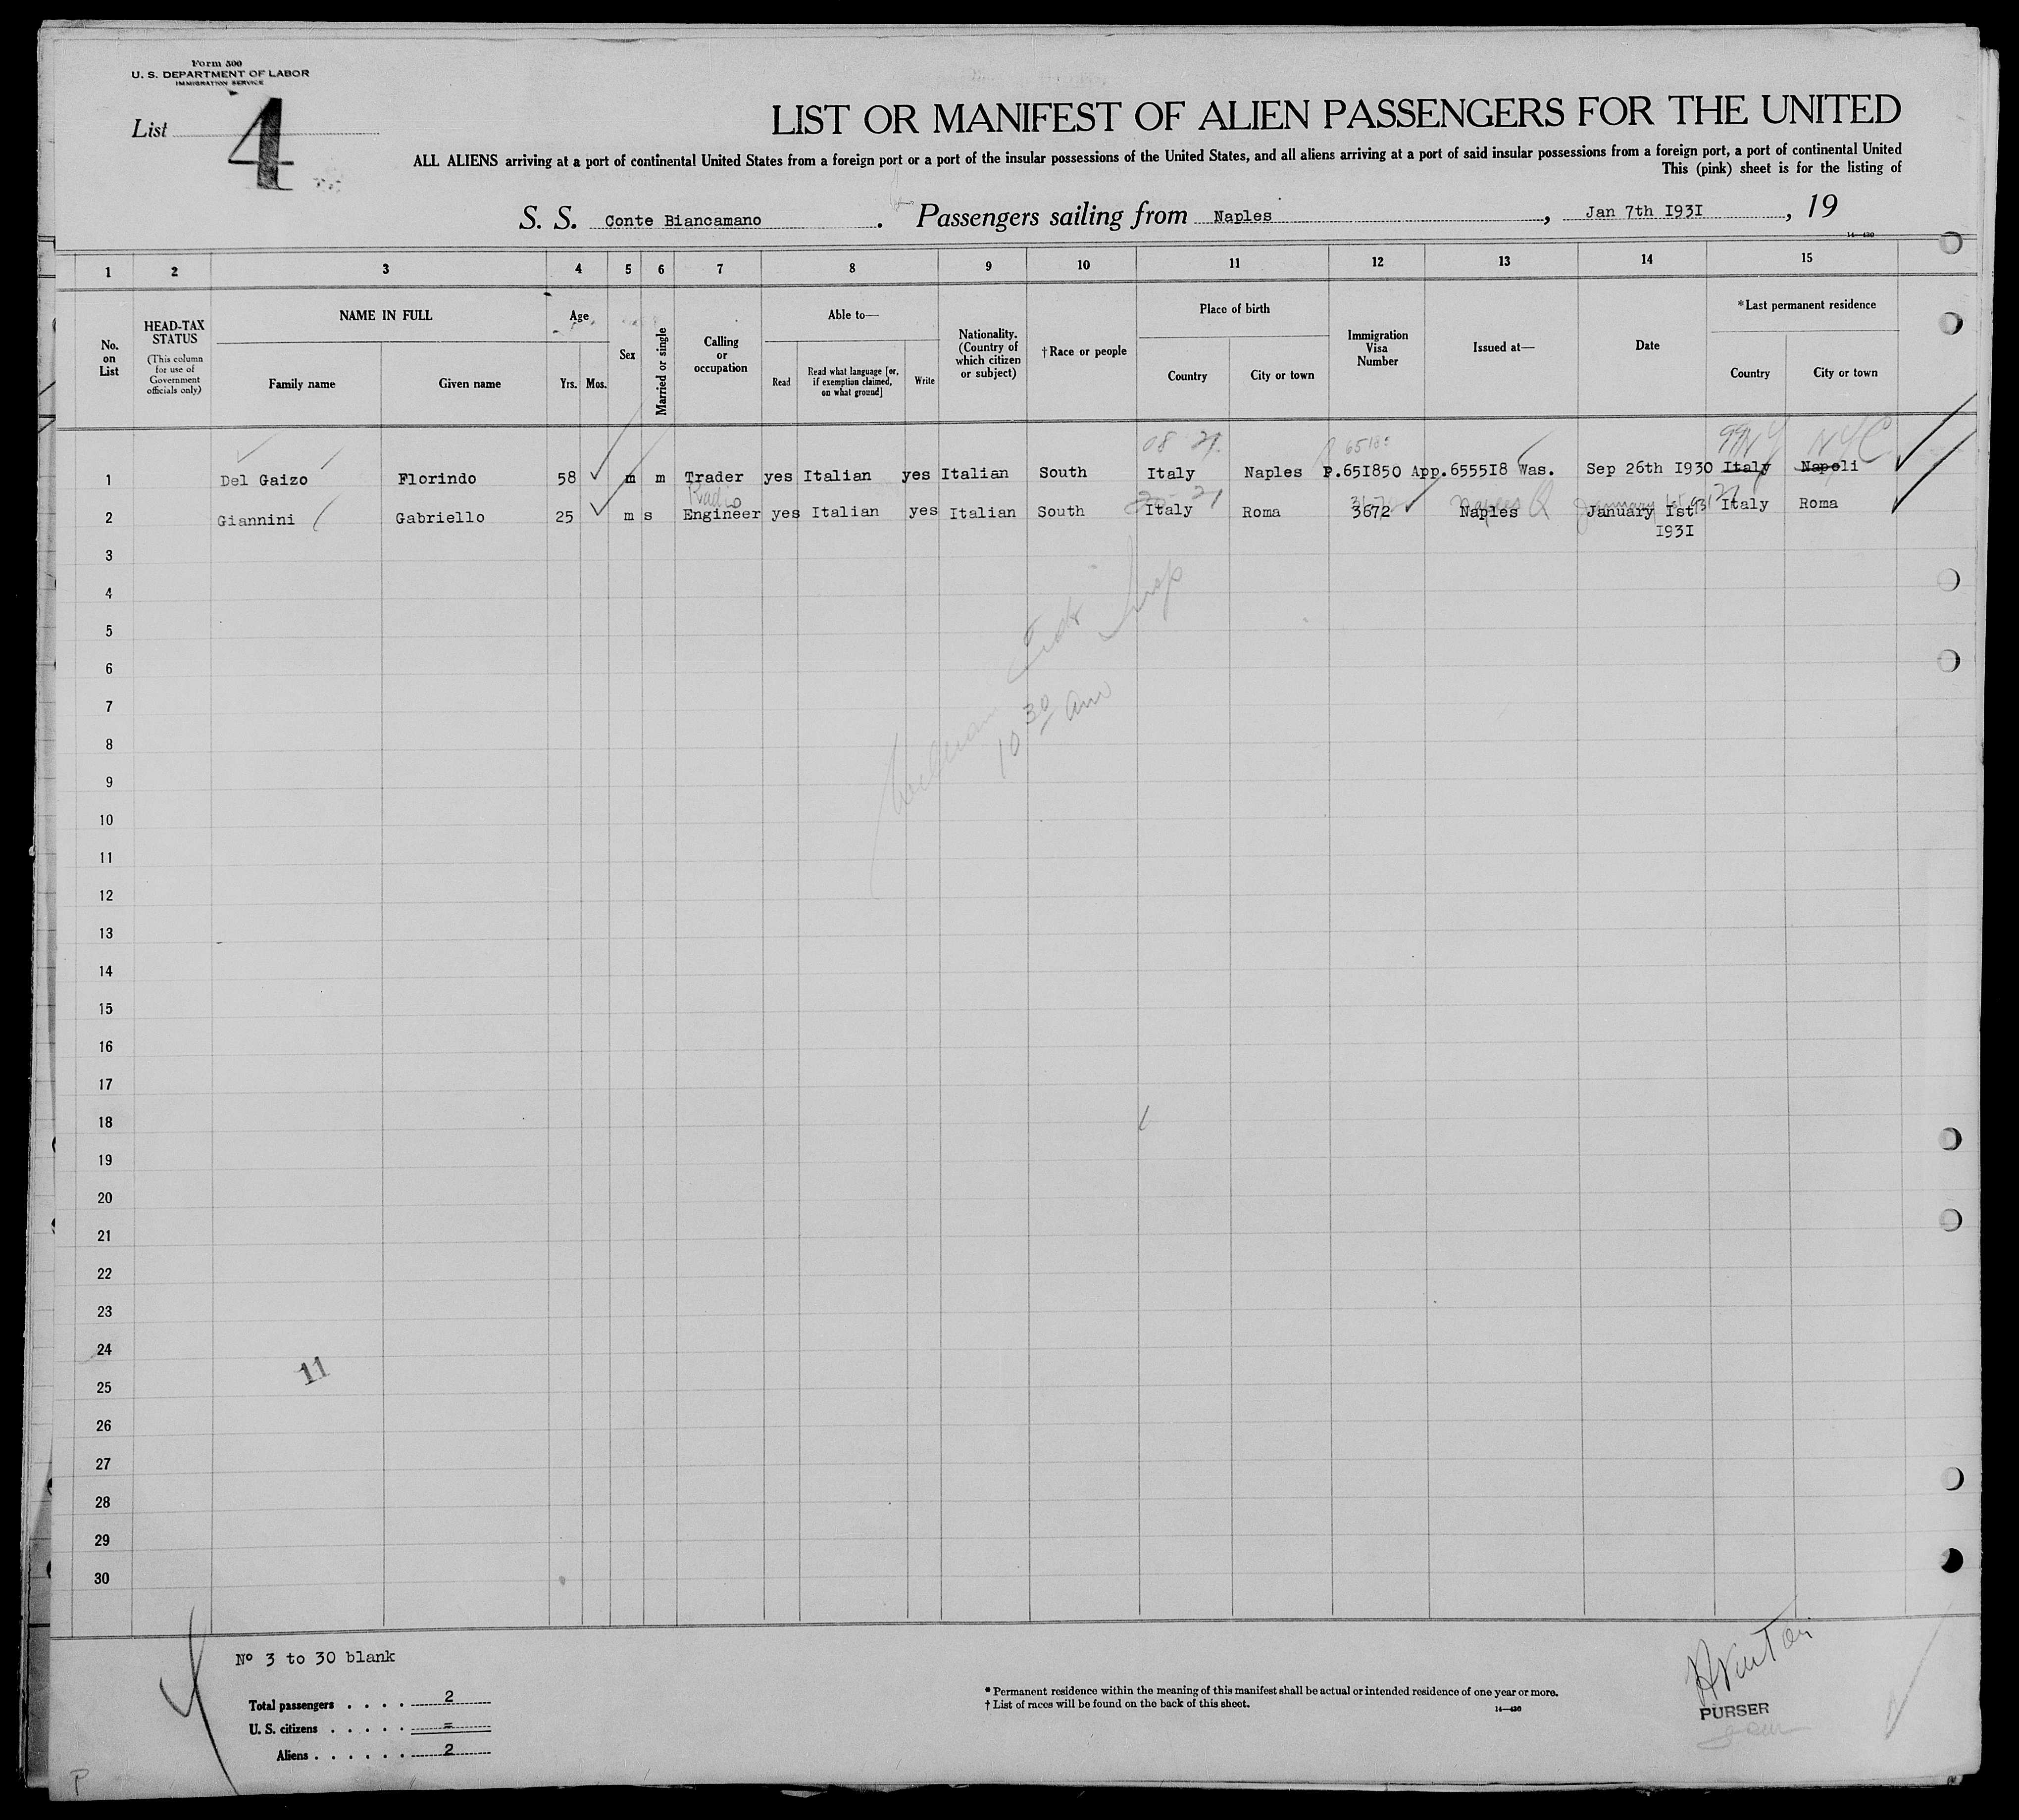 Form 500
U. S. DEPARTMENT OF LABOR
IMMIGRATION SERVICE
List 4
LIST OR MANIFEST OF ALIEN PASSENGERS FOR THE UNITED
ALL ALIENS arriving at a port of continental United States from a foreign port or a port of the insular possessions of the United States, and all aliens arriving at a port of said insular possessions from a foreign port, a port of continental United
This (pink) sheet is for the listing of
S. S. Conte Biancamano. Passengers sailing from Naples, Jan 7th 1931, 19
14—430
1 2 3 4 5 6 7 8 9 10 11 12 13 14 15
No. on List
HEAD-TAX STATUS
(This column for use of Government officials only)
NAME IN FULL
Family name
Given name
Age
Yrs. Mos.
Sex
Married or single
Calling or occupation
Able to—
Read
Read what language [or, if exemption claimed, on what ground]
Write
Nationality. (Country of which citizen or subject)
†Race or people
Place of birth
Country
City or town
Immigration Visa Number
Issued at—
Date
*Last permanent residence
Country
City or town
08 21 99 NY NYC
1 Del Gaizo Florindo 58 m m Trader yes Italian yes Italian South Italy Naples P.651850 App.655518 Was. Sep 26th 1930 Italy Napoli
Radio
2 Giannini Gabriello 25 m s Engineer yes Italian yes Italian South Italy Roma 3672 Naples January 1st 1931 Italy Roma
3
4
5
6
7
8
9
10
11
12
13
14
15
16
17
18
19
20
21
22
23
24
25
26
27
28
29
30
10 30 am
11
Nº 3 to 30 blank
Total passengers . . . . 2
U. S. citizens . . . . . =
Aliens . . . . . . 2
* Permanent residence within the meaning of this manifest shall be actual or intended residence of one year or more.
† List of races will be found on the back of this sheet.
14—430
PURSER
P